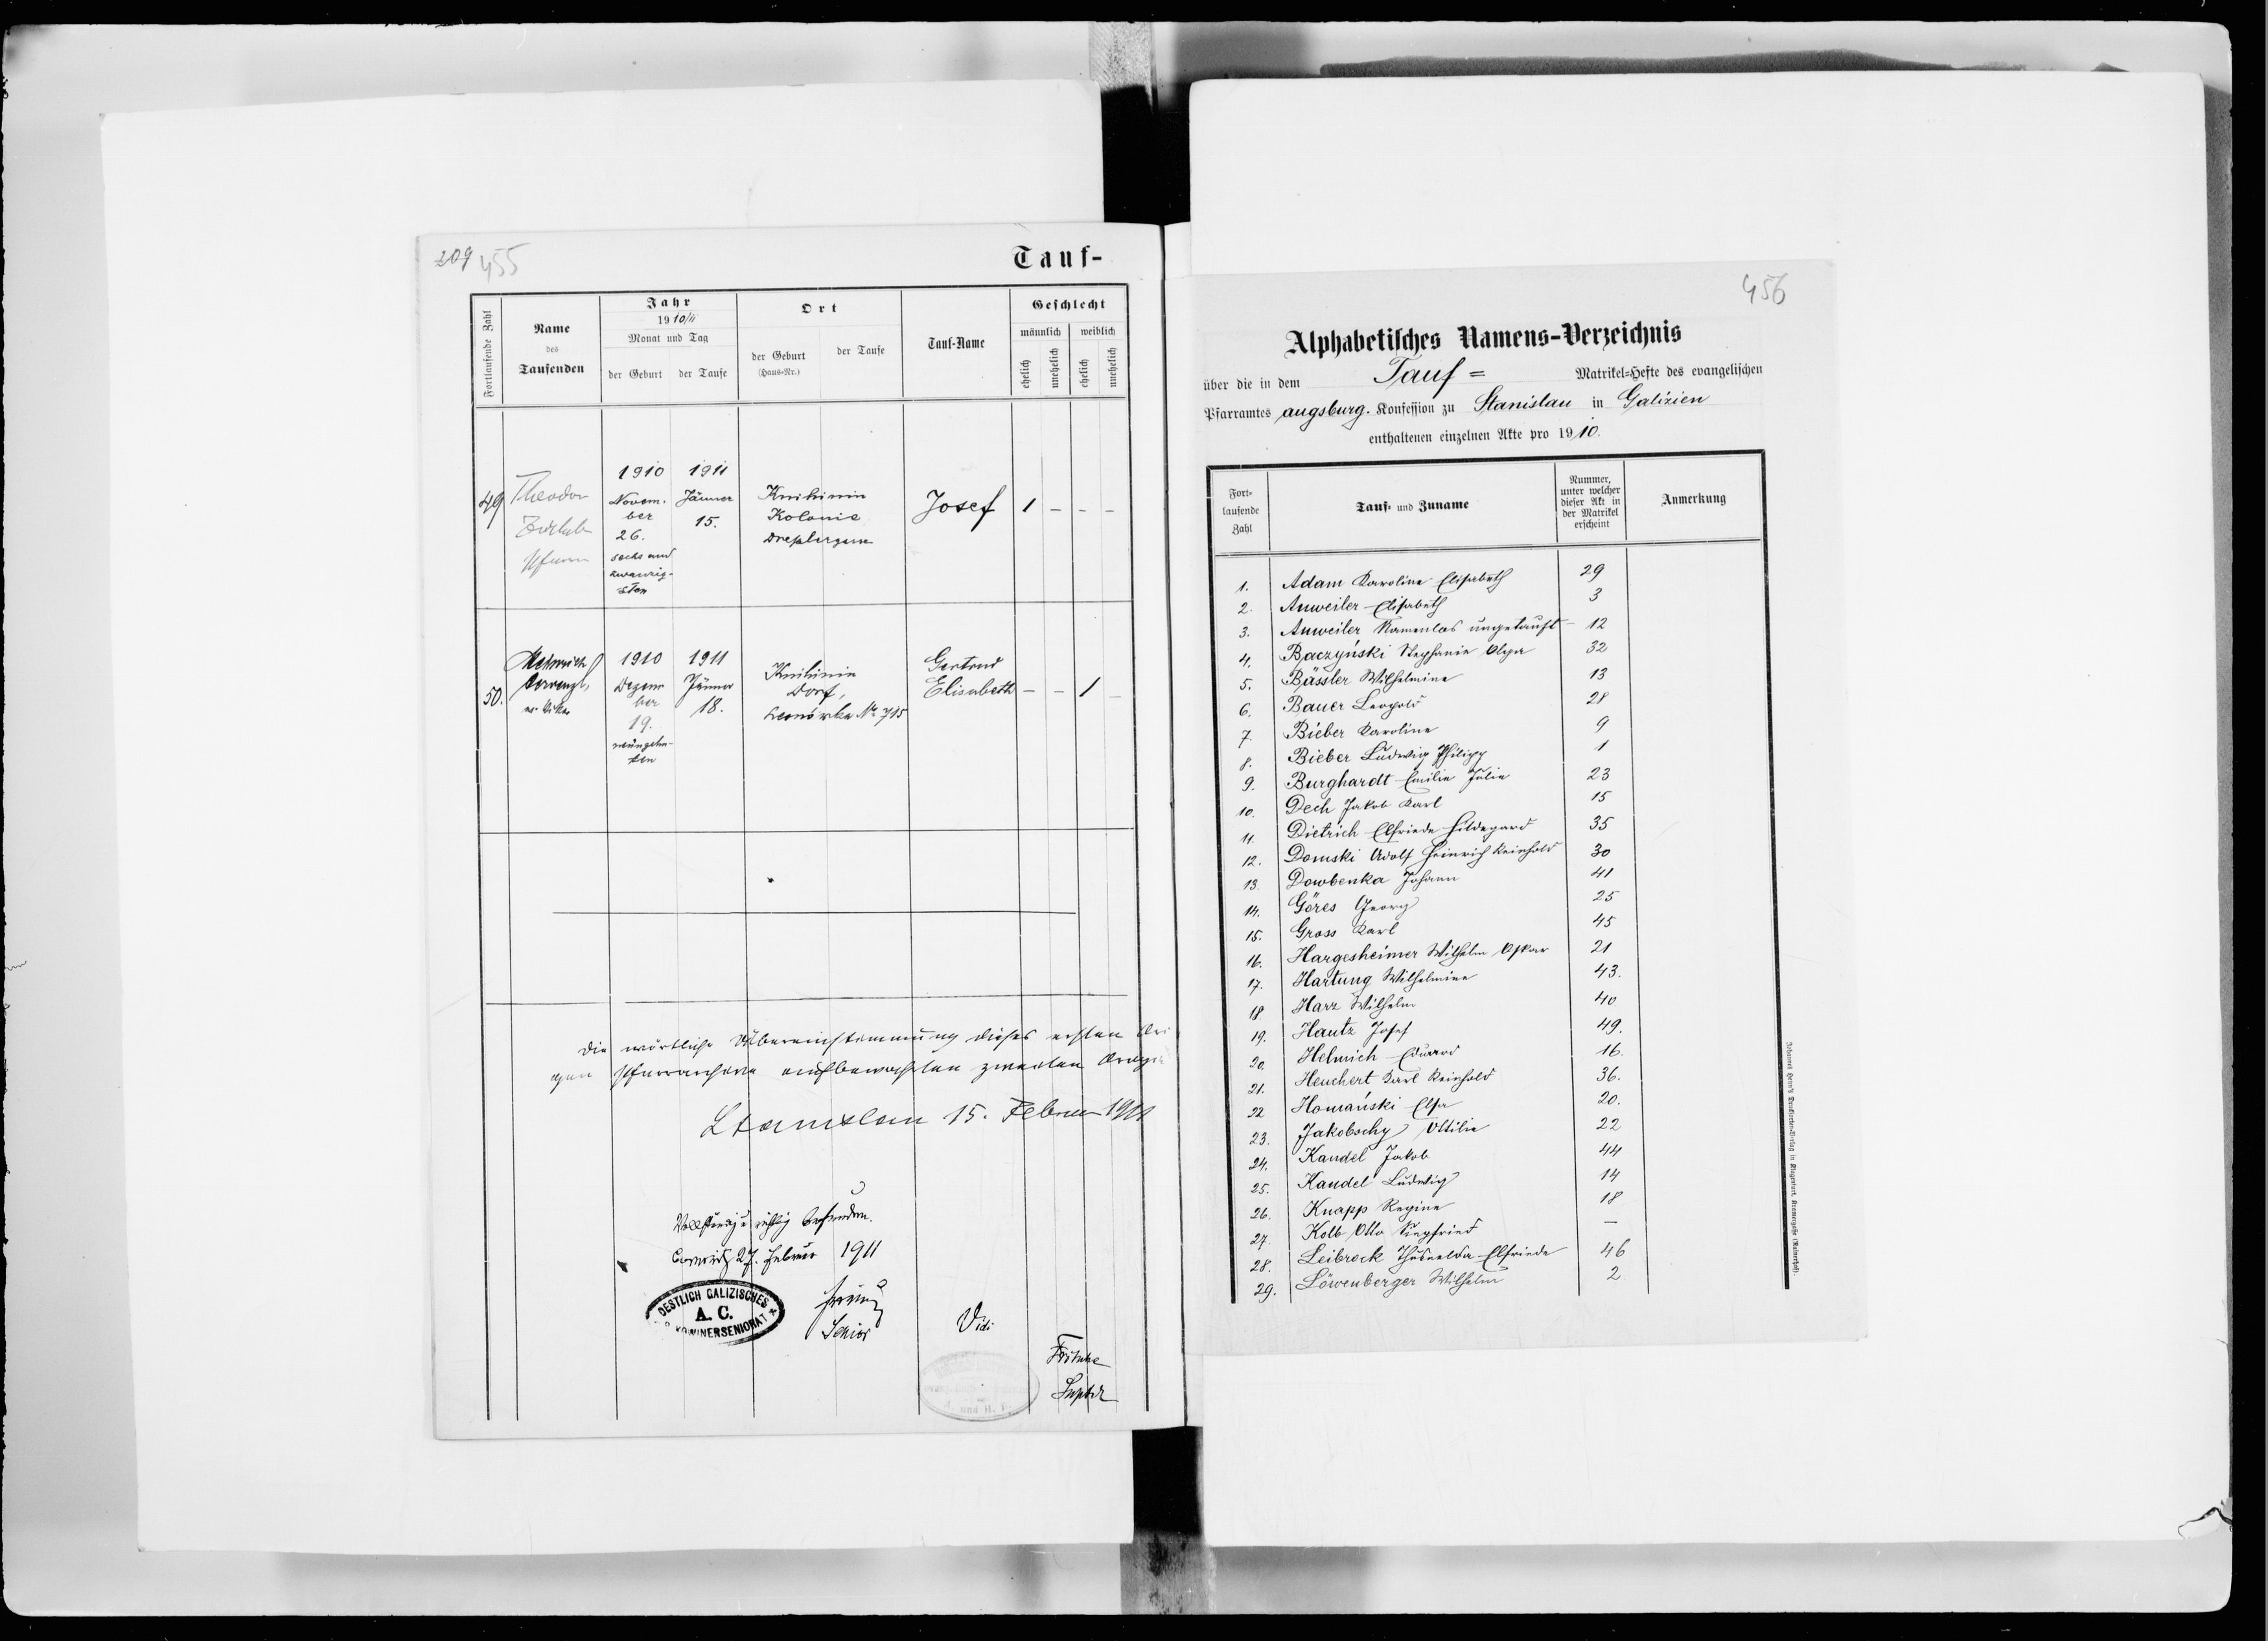 209 455
Tauf-
Fortlaufende Zahl
Name
des
Taufenden
Jahr
1910/11
Monat und Tag
der Geburt
der Taufe
Ort
der Geburt
(Haus-Nr.)
der Taufe
Tauf-Name
Geschlecht
männlich
weiblich
ehelich
unehelich
ehelich
unehelich
49
Theodor
Zöckler
Pfarrer
1910
Novem-
ber
26.
sechs und
zwanzig-
sten
1911
Jänner
15.
Knihinin
Kolonie
Josef
1 - - -
50.
Heinrich
ev. Vikar
1910
Dezem
ber
19.
neunzehn-
ten
1911
Jänner
18.
Knihinin
Dorf,
No 715
Gertrud
Elisabeth
- - 1 -
Die wörtliche Übereinstimmung dieses ersten Ori
gen Pfarrarchive aufbewahrten zweiten Origi
Stanislau 15. Februar 1911
Vollständig u richtig befunden.
27. Februar 1911
OESTLICH GALIZISCHES
A. C.
Senior
Vidi
Fritsche
Suptdt
A. und H. C.
456
Alphabetisches Namens-Verzeichnis
über die in dem Tauf = Matrikel-Hefte des evangelischen
Pfarramtes augsburg. Konfession zu Stanislau in Galizien
enthaltenen einzelnen Akte pro 1910.
Fort-
laufende
Zahl
Tauf- und Zuname
Nummer,
unter welcher
dieser Akt in
der Matrikel
erscheint
Anmerkung
1. Adam Karoline Elisabeth 29
2. Anweiler Elisabeth 3
3. Anweiler Namenlos ungetauft - 12
4. Baczyński Stephanie Olga 32
5. Bässler Wilhelmine 13
6. Bauer Leopold 28
7. Bieber Karoline 9
8. Bieber Ludwig Philipp 1
9. Burghardt Emilie Julie 23
10. Dech Jakob Karl 15
11. Dietrich Elfriede Hildegard 35
12. Domski Adolf Heinrich Reinhold 30
13. Dowbenka Johann 41
14. Göres Georg 25
15. Gross Karl 45
16. Hargesheimer Wilhelm Oskar 21
17. Hartung Wilhelmine 43.
18. Harz Wilhelm 40
19. Hautz Josef 49.
20. Helmich Eduard 16.
21. Heuchert Karl Reinhold 36.
22 Homański Elsa 20.
23. Jakobschy Ottilie 22
24. Kandel Jakob 44
25. Kandel Ludwig 14
26. Knapp Regine 18
27. Kolb Otto Siegfried —
28. Leibrock Thusnelda Elfriede 46
29. Löwenberger Wilhelm 2